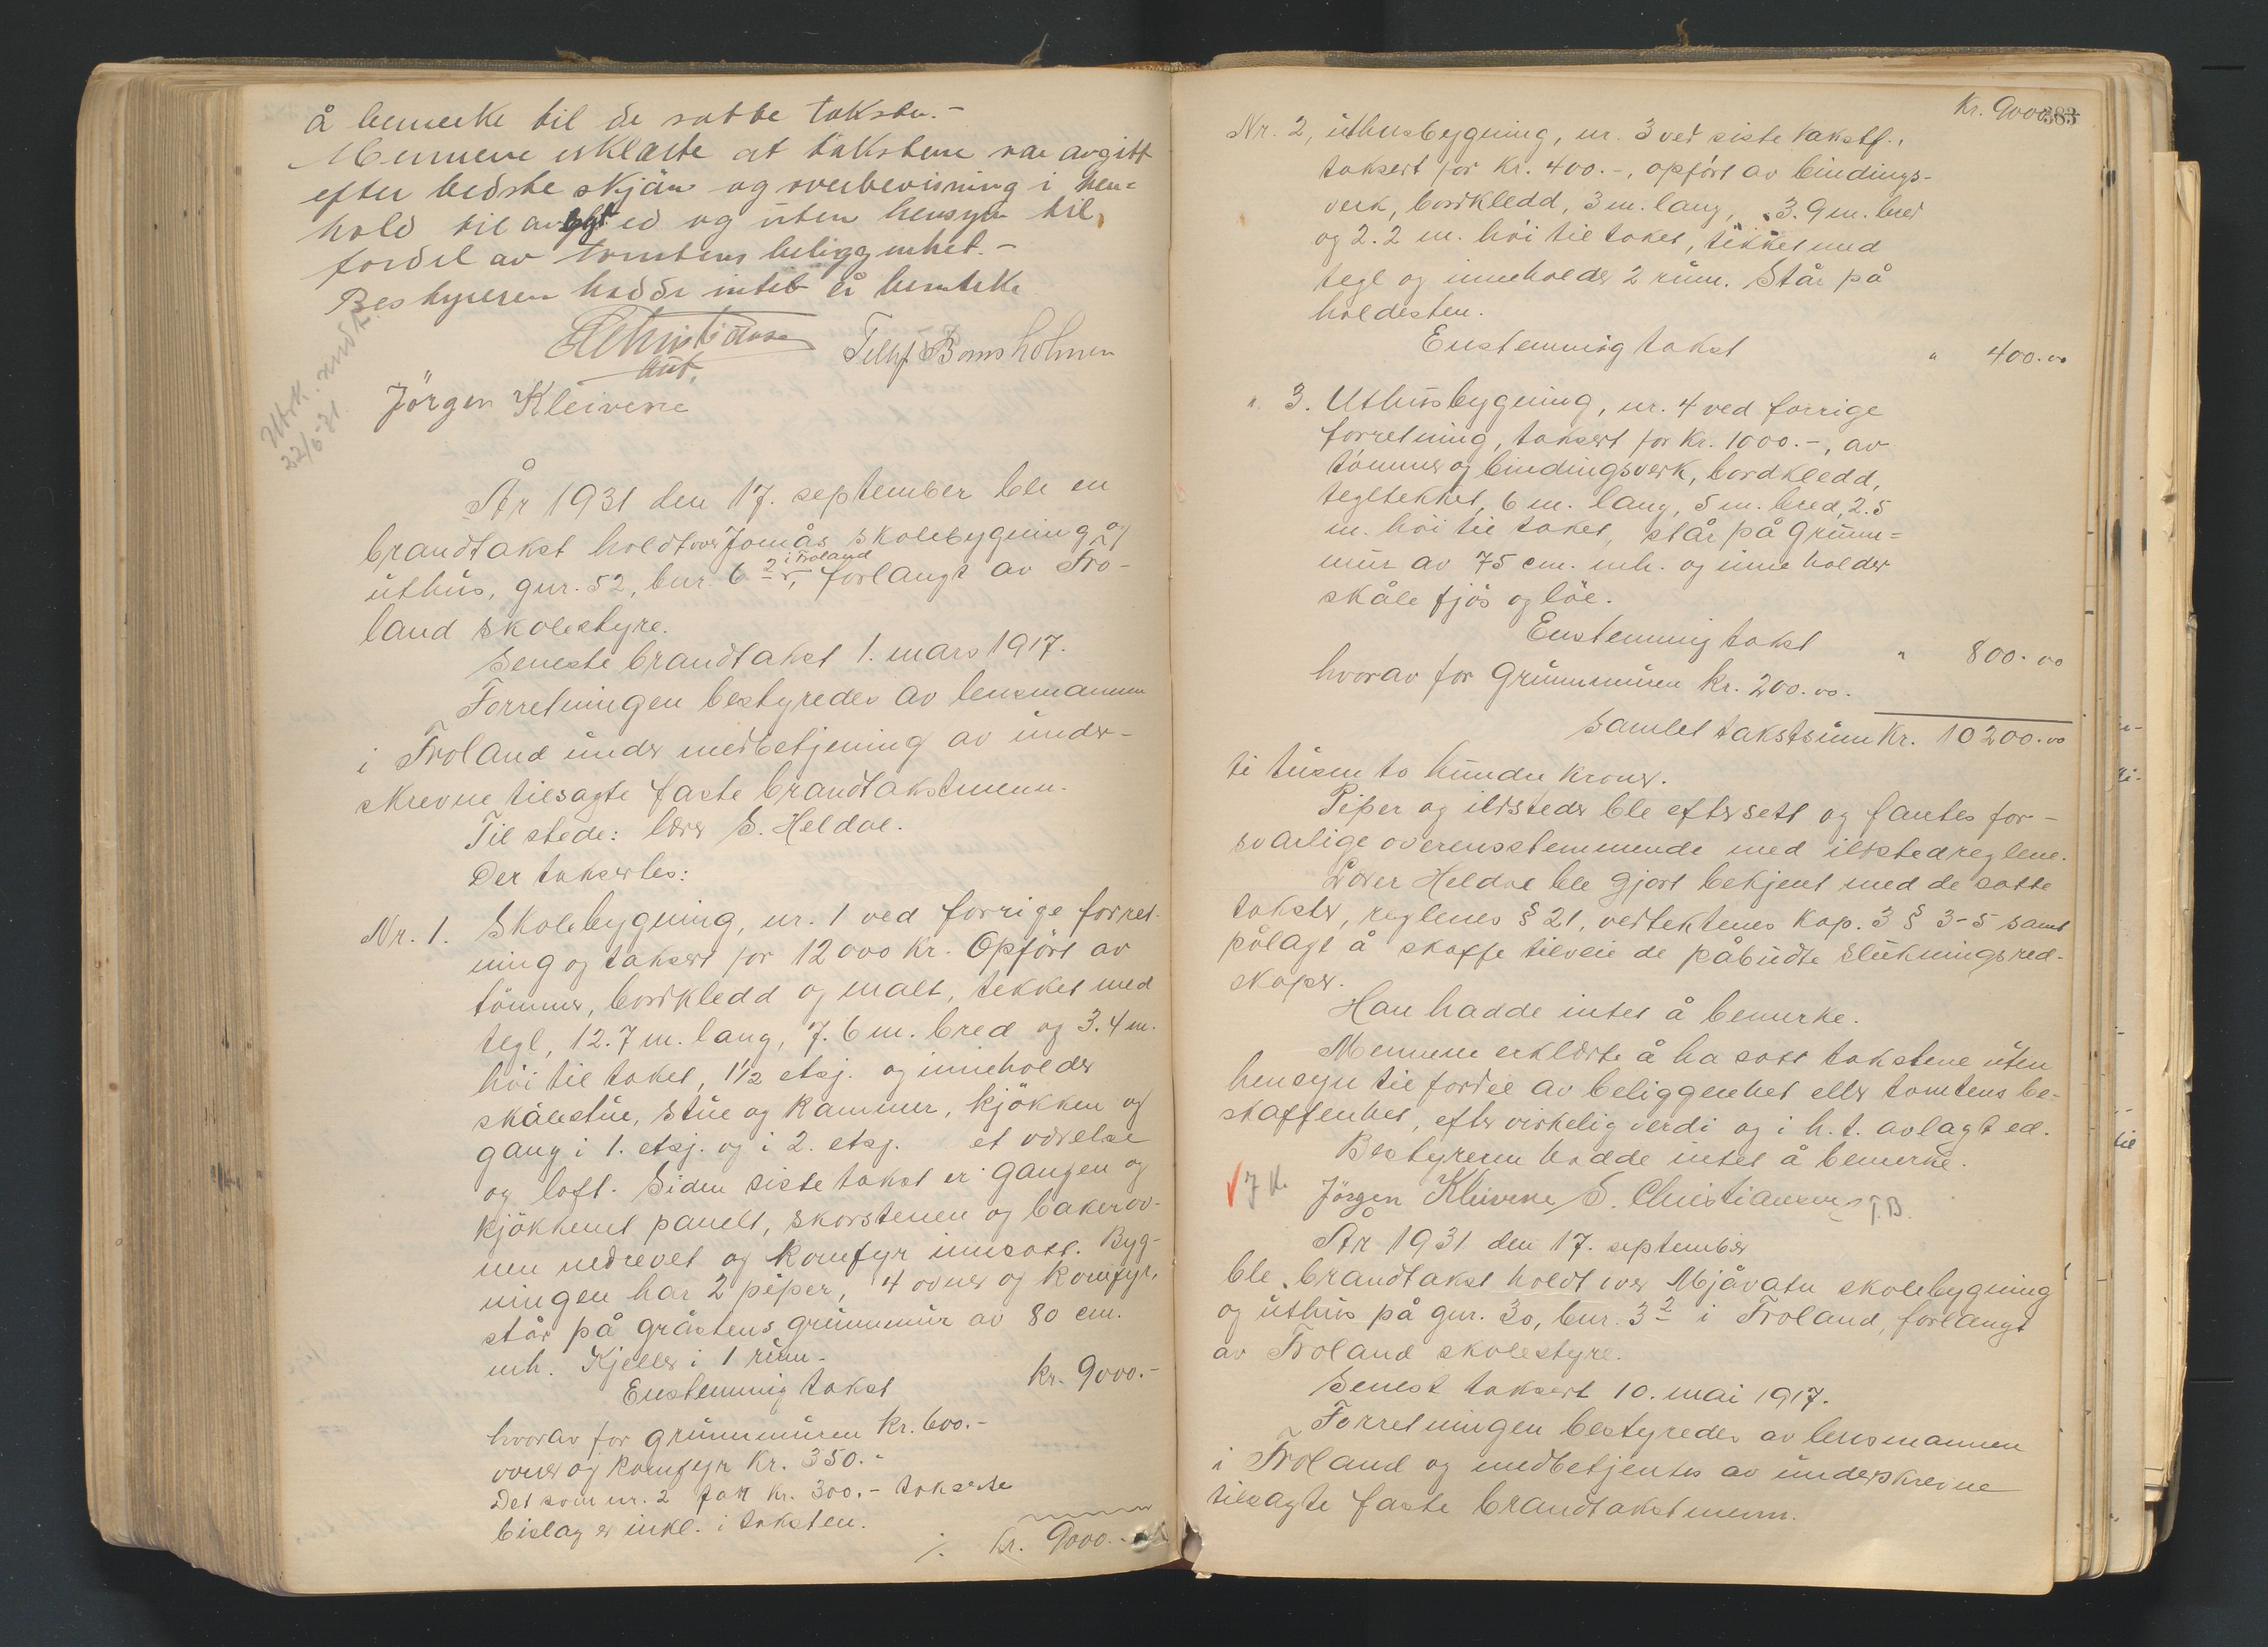 å bemerke til de satte takster.-
Mennene erklærte at takstene var avgitt
efter bedste skjön og overbevisning i hen=
hold til avlagt ed og uten hensyn til
fordel av tomtens beliggenhet.-
Bestyreren hadde intet å bemerke
SChristiansen Tellef Bomsholmen
aut.
Jörgen Kleivene
Utsk. sendt
22/6-31.
År 1931 den 17. september ble en
brandtakst holdt over Jomås skolebygning og
uthus, gnr. 52, bnr. 6 2 i Froland, forlangt av Fro-
land skolestyre.
Seneste brandtakst 1. mars 1917.
Forretningen bestyredes av lensmannen
i Froland under medbetjening av under-
skrevne tilsagte faste brandtakstmenn.
Til stede: lærer S. Heldal.
Der taksertes:
Nr. 1. Skolebygning, nr. 1 ved forrige forret-
ning og taksert for 12000 kr. Opfört av
tömmer, bordkledd og malt, tekket med
tegl, 12.7 m. lang, 7.6 m. bred og 3.4 m.
höi til taket, 1½ etsj. og inneholder
skålestue, stue og kammer, kjökken og
gang i 1. etsj. og i 2. etsj. et værelse
og loft. Siden siste takst er gangen og
kjökkenet panelt, skorstenen og bakerov-
nen nedrevet og komfyr innsatt. Byg-
ningen har 2 piper, 4 ovner og komfyr,
står på gråstens grunnmur av 80 cm.
mh. Kjeller i 1 rum.
Enstemmig takst kr. 9000.-
hvorav for grunnmuren kr. 600.-
ovner og komfyr kr. 350.-
Det som nr. 2 for kr. 300.- takserte
bislag er inkl. i taksten.
./. kr. 9000.-
kr. 9000 383
Nr. 2, uthusbygning, nr. 3 ved siste takstf.,
taksert for kr. 400.-, opfört av bindings-
verk, bordkledd, 3 m. lang, 3.9 m. bred
og 2.2 m. höi til taket, tekket med
tegl og inneholder 2 rum. Står på
holdesten.
Enstemmig takst " 400.00
" 3. Uthusbygning, nr. 4 ved forrige
forretning, taksert for kr. 1000.-, av
tömmer og bindingsverk, bordkledd,
tegltekket, 6 m. lang, 5 m. bred, 2.5
m. höi til taket, står på grunn=
mur av 75 cm. mh. og inneholder
skåle fjös og löe.
Enstemmig takst " 800.00
hvorav for grunnmuren kr. 200.00.
Samlet takstsum kr. 10200.00
ti tusen to hundre kroner.
Piper og ildsteder ble eftersett og fantes for-
svarlige overensstemmende med ildstedreglene.
Lærer Heldal ble gjort bekjent med de satte
takster, reglenes § 21, vedtektenes kap. 3 § 3-5 samt
pålagt å skaffe tilveie de påbudte slukningsred-
skaper.
Han hadde intet å bemerke.
Mennene erklærte å ha satt takstene uten
hensyn til fordel av beliggenhet eller tomtens be-
skaffenhet, efter virkelig verdi og i h. t. avlagt ed.
Bestyreren hadde intet å bemerke.
J K. Jörgen Kleivene S. Christiansen T.B.
År 1931 den 17. september
ble brandtakst holdt over Mjåvatn skolebygning
og uthus på gnr. 30, bnr. 3 2 i Froland, forlangt
av Froland skolestyre.
Senest taksert 10. mai 1917.
Forretningen bestyredes av lensmannen
i Froland og medbetjentes av underskrevne
tilsagte faste brandtakstmenn.